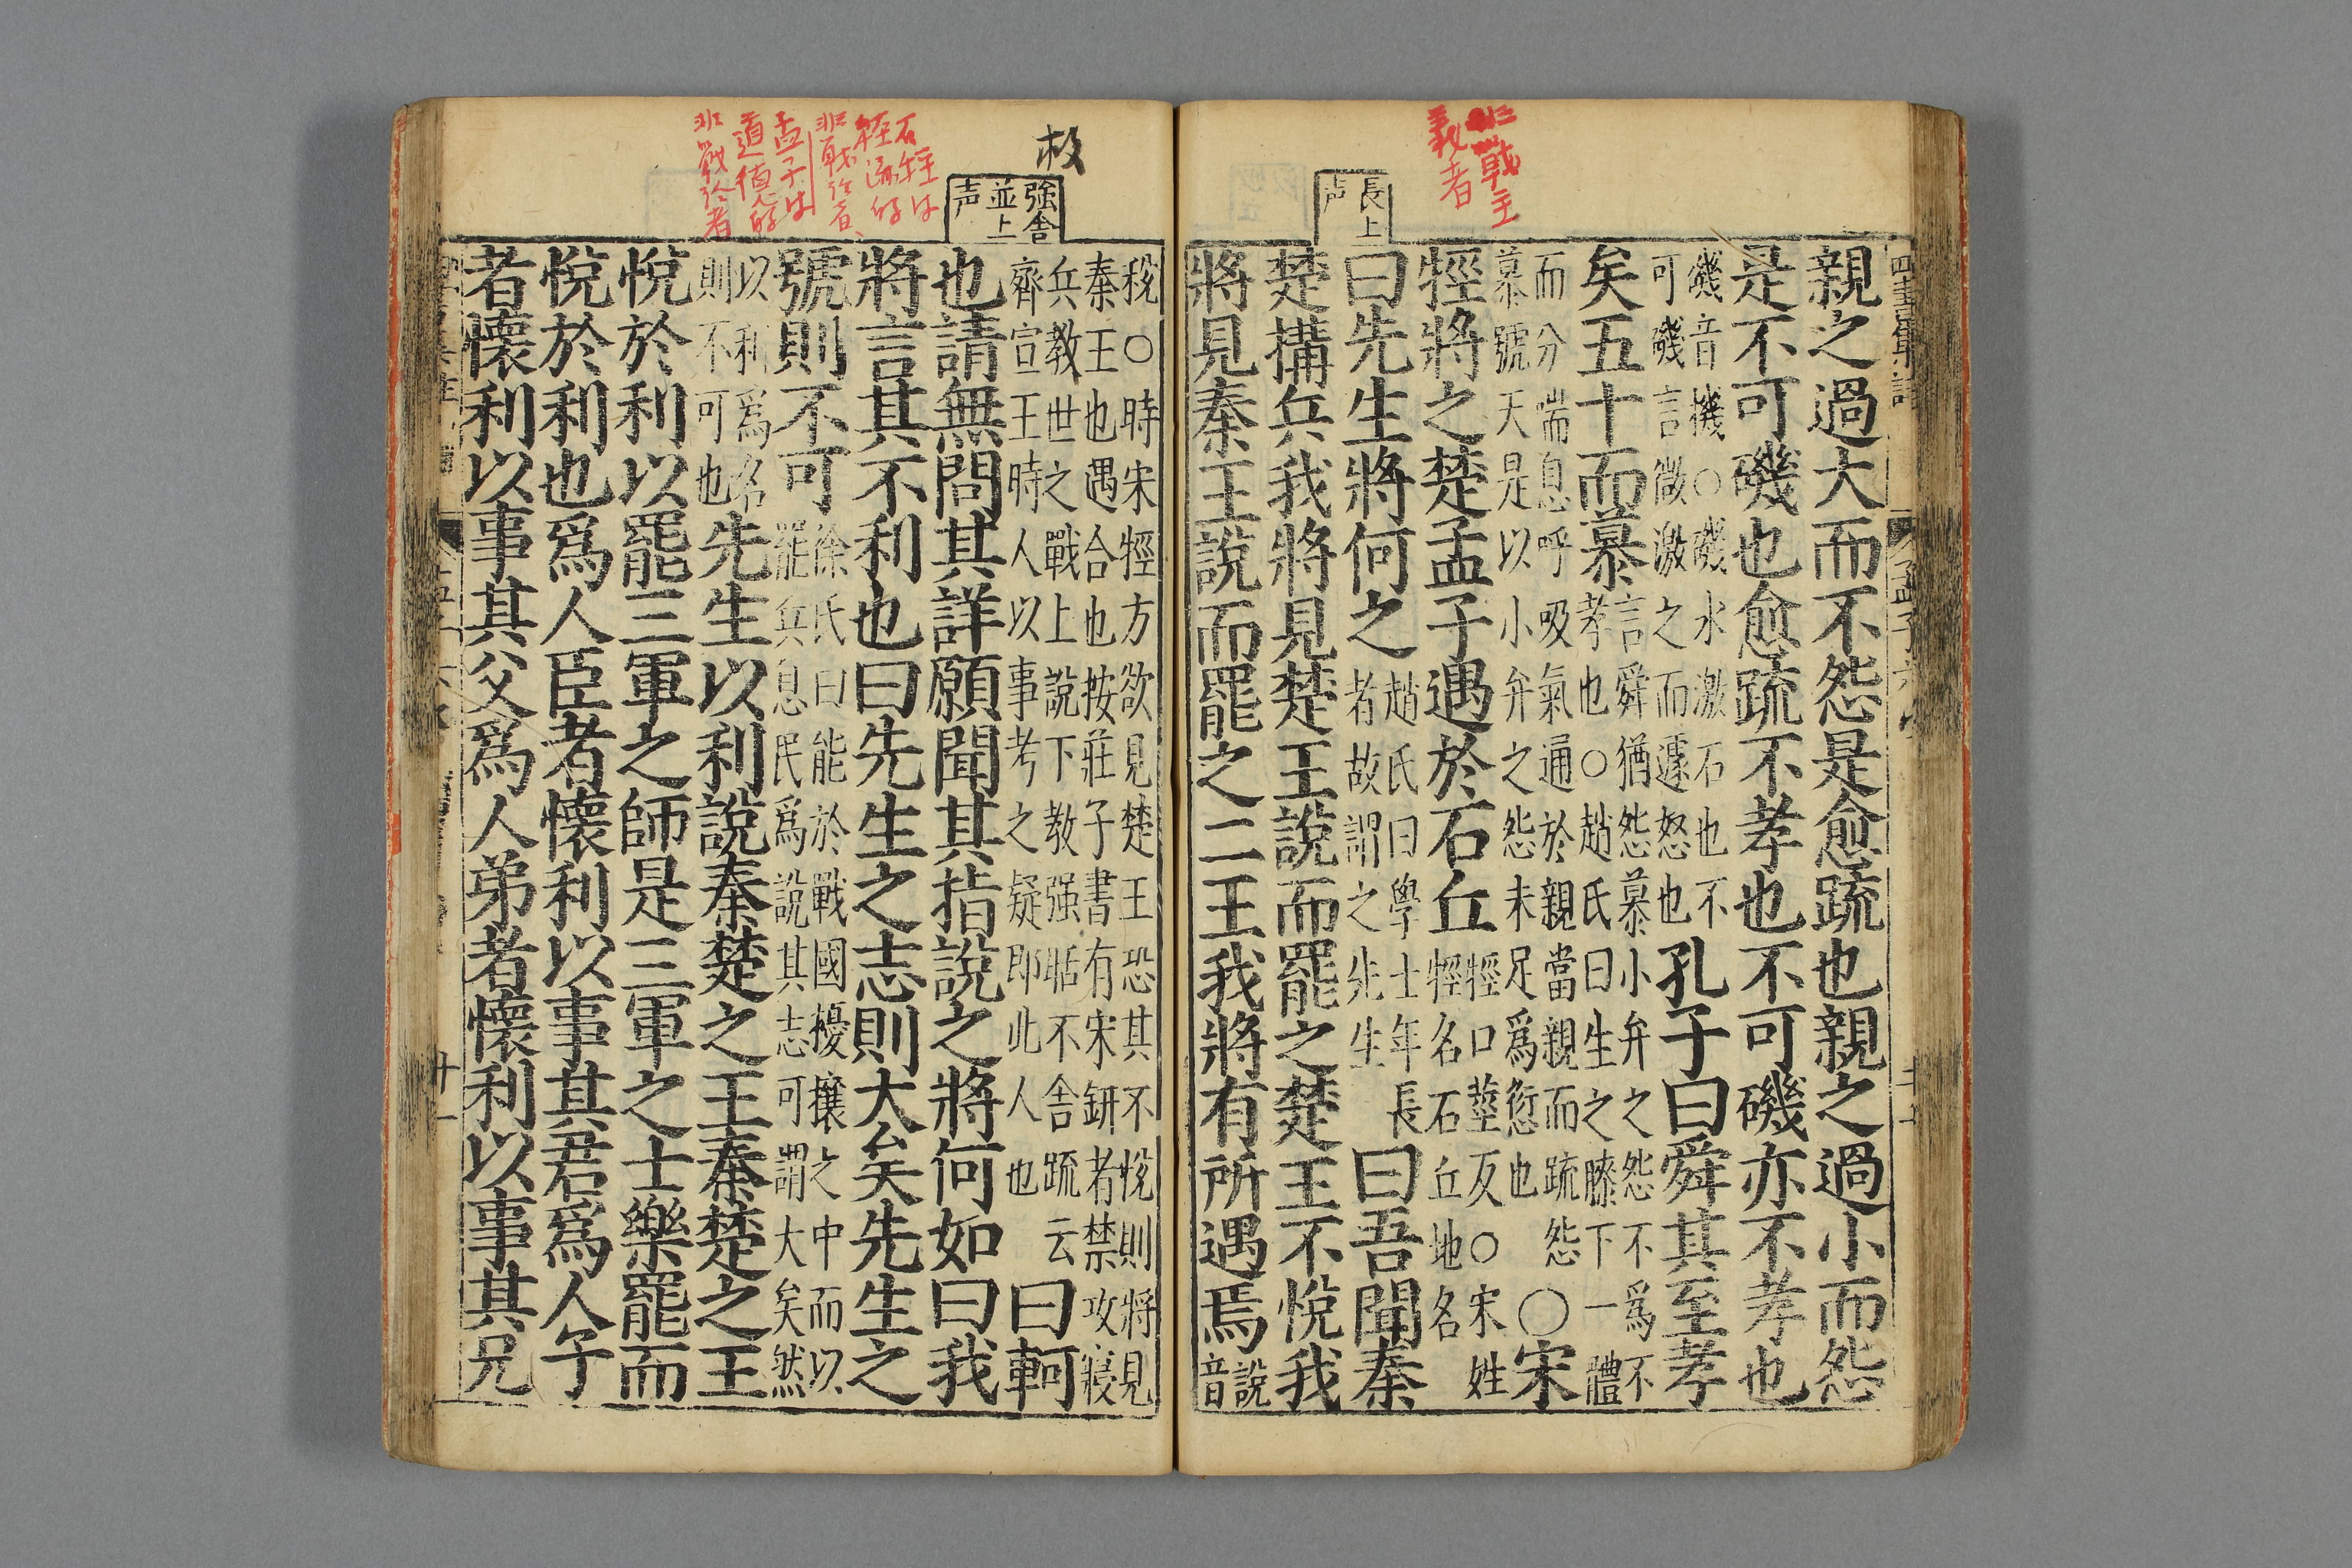 非戰主
義者
長上
声
親之過大而不怨是愈疏也親之過小而怨
是不可磯也愈疏不孝也不可磯亦不孝也
磯音機○磯水激石也不
可磯言微激之而遽怒也
孔子曰舜其至孝
矣五十而慕
言舜猶怨慕小弁之怨不爲不
孝也○趙氏曰生之膝下一體
而分喘息呼吸氣通於親當親而疏怨
慕號天是以小弁之怨未足爲愆也
○宋
牼將之楚孟子遇於石丘
牼口莖反○宋姓
牼名石丘地名
曰先生將何之
趙氏曰學士年長
者故謂之先生
曰吾聞秦
楚構兵我將見楚王說而罷之楚王不悅我
將見秦王說而罷之二王我將有所遇焉
說
音
强舍
並上
声
石牼は
非戰論者
孟子は
道德的
非戰論者
稅○時宋牼方欲見楚王恐其不悅則將見
秦王也遇合也按莊子書有宋鈃者禁攻寢
兵教世之戰上說下教强聒不舍疏云
齊宣王時人以事考之疑即此人也
曰軻
也請無問其詳願聞其指說之將何如曰我
將言其不利也曰先生之志則大矣先生之
號則不可
徐氏曰能於戰國擾攘之中而以
罷兵息民爲說其志可謂大矣然
以利爲名
則不可也
先生以利說秦楚之王秦楚之王
悅於利以罷三軍之師是三軍之士樂罷而
悅於利也爲人臣者懷利以事其君爲人子
者懷利以事其父爲人弟者懷利以事其兄